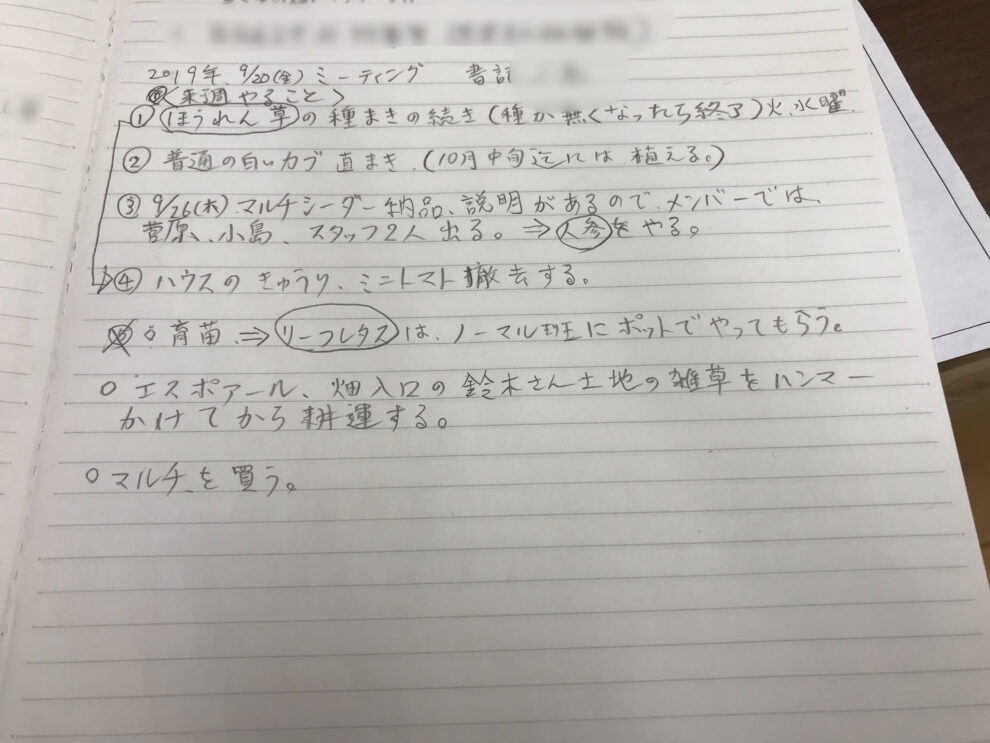 2019年 9/20(金) ミーティング 書記
<来週やること>
① ほうれん草の種まきの続き (種が無くなったら終了) 火、水曜
② 普通の白いカブ 直まき (10月中旬迄には植える。)
③ 9/26(木) マルチシーダー納品、説明があるので、メンバーでは、
菅原、小島、スタッフ2人出る。⇒人参をやる。
④ ハウスのきゅうり、ミニトマト撤去する。
○ 育苗 ⇒ リーフレタスは、ノーマル班にポットでやってもらう。
○ エスポアール、畑入口の鈴木さん土地の雑草をハンマー
かけてから耕運する。
○ マルチを買う。